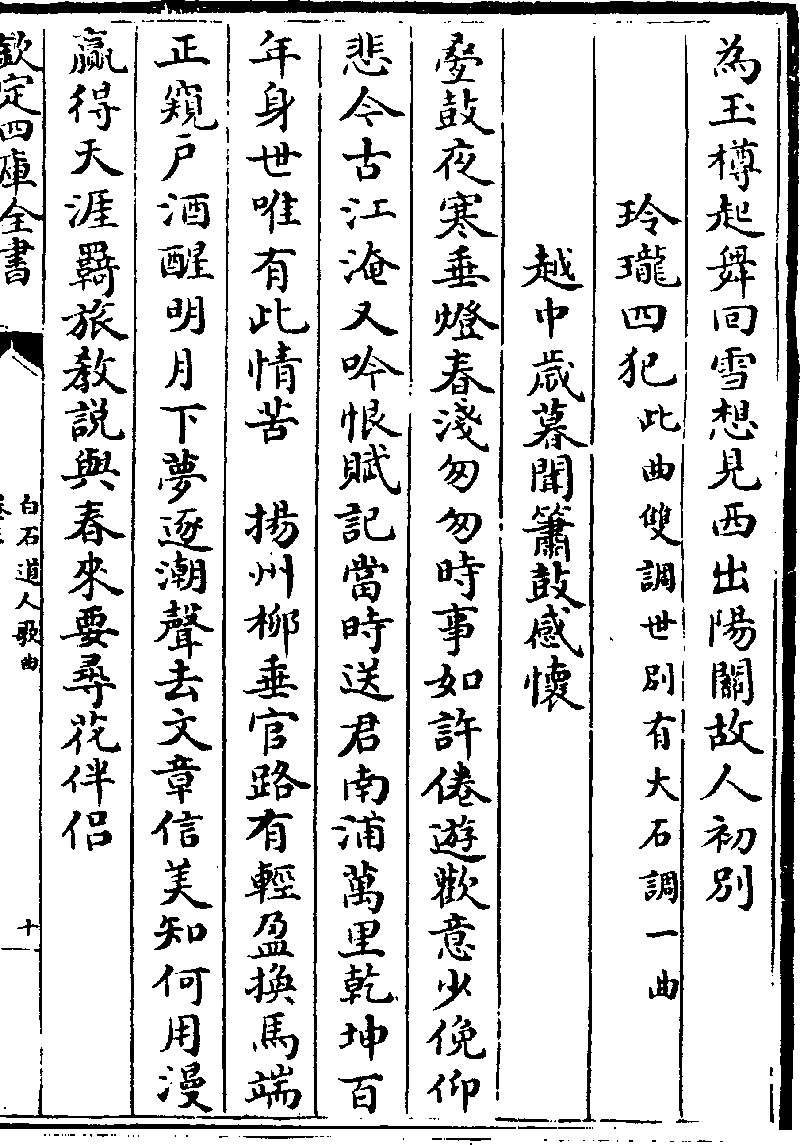 為玉樽起舞回雪想見西出陽關故人初别
玲瓏四犯此曲雙調世别有大石調一曲
越中歳暮聞簫鼓感懷
疊鼓夜寒垂燈春淺匆匆時事如許倦遊歡意少俛仰
悲今古江淹又吟恨賦記當時送君南浦萬里乾坤百
年身世唯有此情苦　揚州柳垂官路有輕盈換馬端
正窺戶酒醒明月下夢逐潮聲去文章信美知何用漫
贏得天涯羇旅教説與春來要尋花伴侶
欽定四庫全書
白石道人歌曲
十